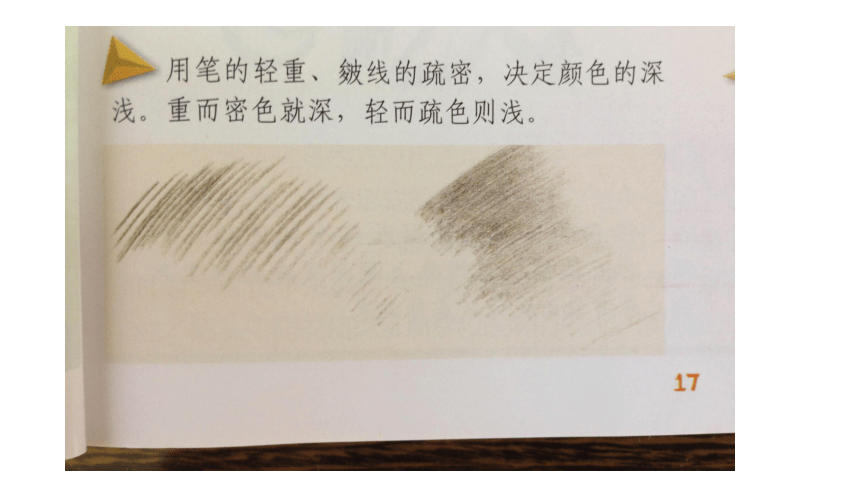 用笔的轻重、皴线的疏密，决定颜色的深
浅。重而密色就深，轻而疏色则浅。
17